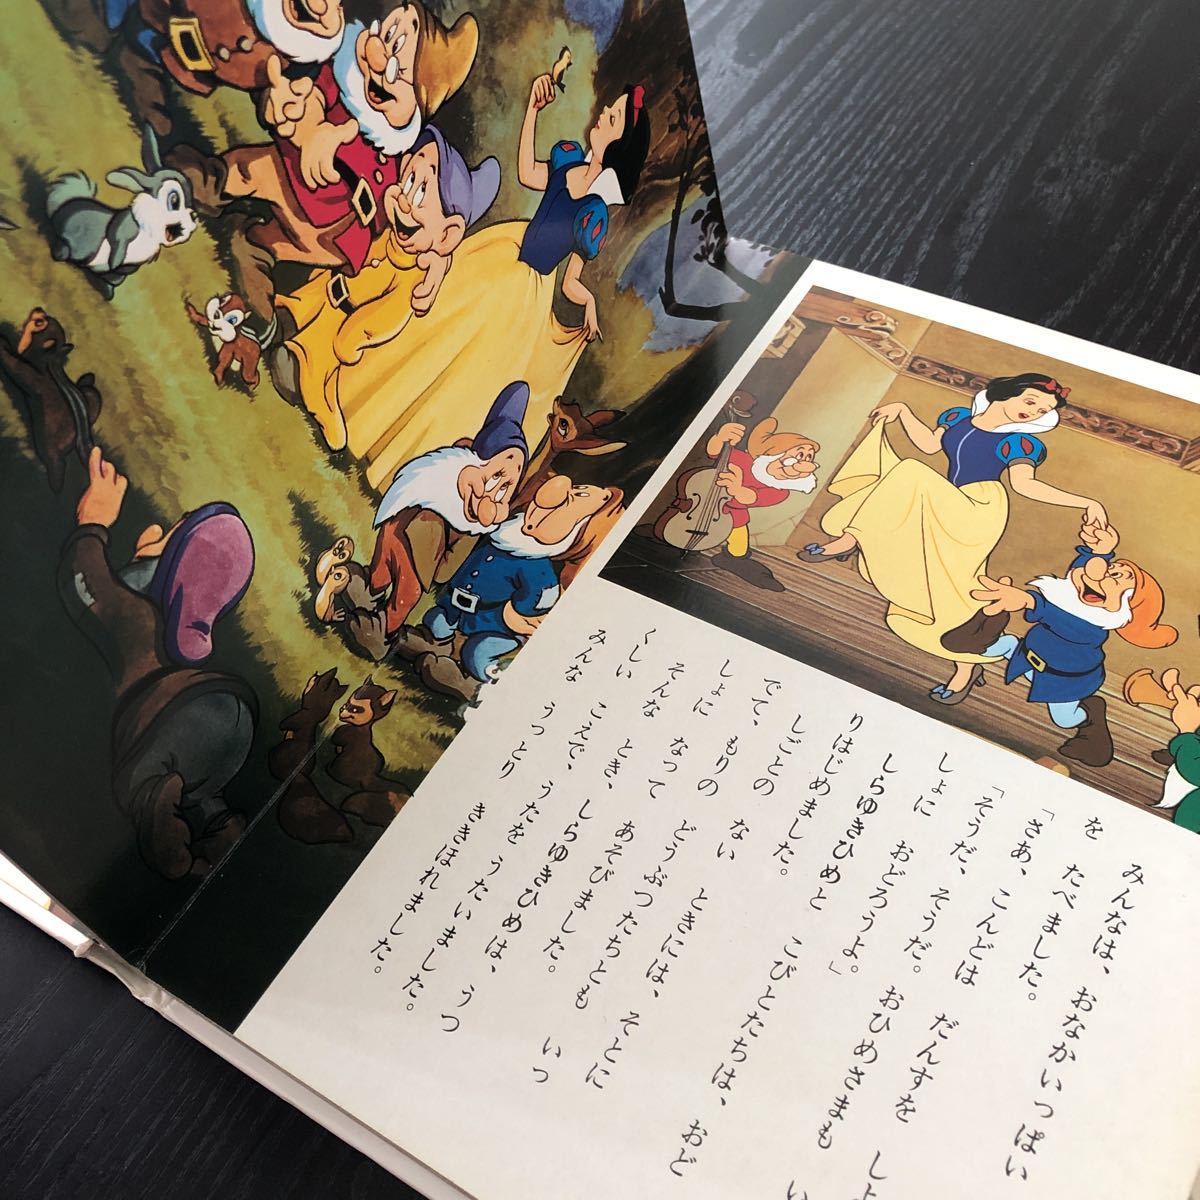 みんなは、おなかいっぱい
を たべました。
「さあ、こんどは だんすを しよ
「そうだ、そうだ。おひめさまも い
しょに おどろうよ。」
しらゆきひめと こびとたちは、おど
りはじめました。
しごとの ない ときには、そとに
でて、もりの どうぶつたちとも いっ
しょに なって あそびました。
そんな とき、しらゆきひめは、うつ
くしい こえで、うたを うたいました。
みんな うっとり ききほれました。